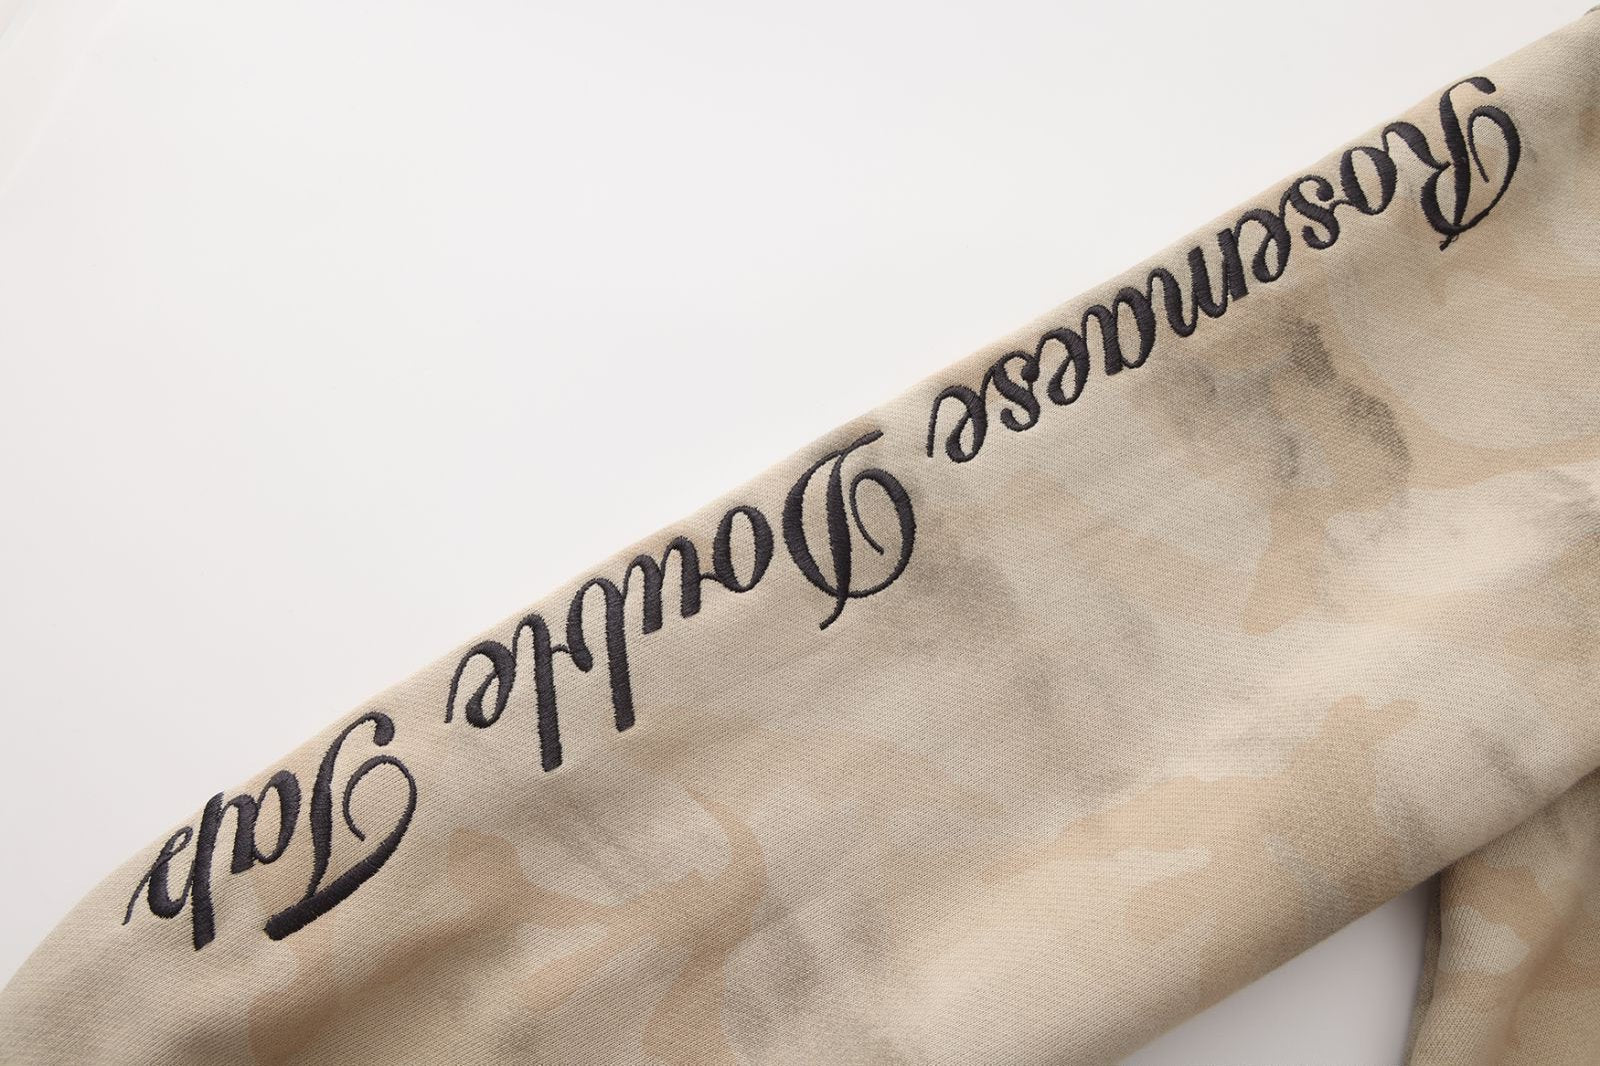 Rosemaese Double Tab